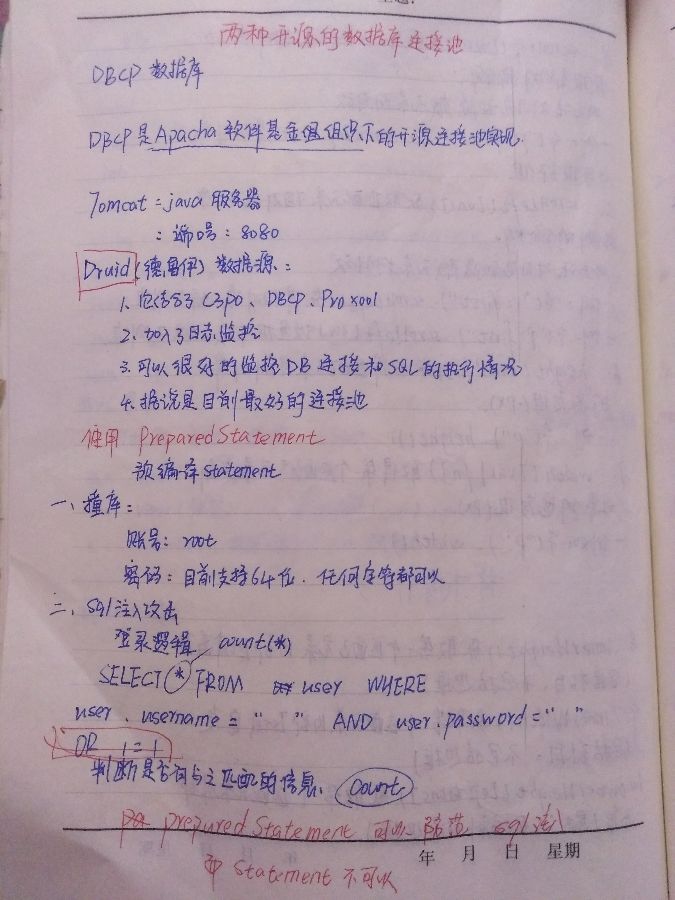 两种开源的数据库连接池
DBCP 数据库
DBCP是Apacha软件基金组织下的开源连接池实现.
Tomcat = java 服务器
: 端口号: 8080
Druid (德鲁伊) 数据源:
1. 包含了 C3p0、DBCP、Proxool
2. 加入了日志监控
3. 可以很好的监控DB连接和SQL的执行情况
4. 据说是目前最好的连接池
使用 PreparedStatement
预编译statement
一、撞库:
账号: root
密码: 目前支持64位. 任何字符都可以
二、sql注入攻击
登录逻辑 count(*)
SELECT * FROM user WHERE
user.username = " " AND user.password = " "
OR 1=1
判断是否有与之匹配的信息. count
preparedStatement 可以 防范 sql 注入
年 月 日 星期
而 statement 不可以